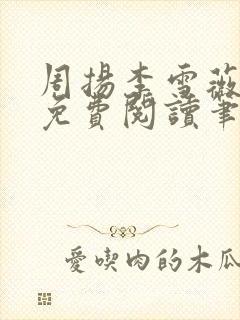 周揚李雪薇
免費閱讀筆
愛喫肉的木瓜